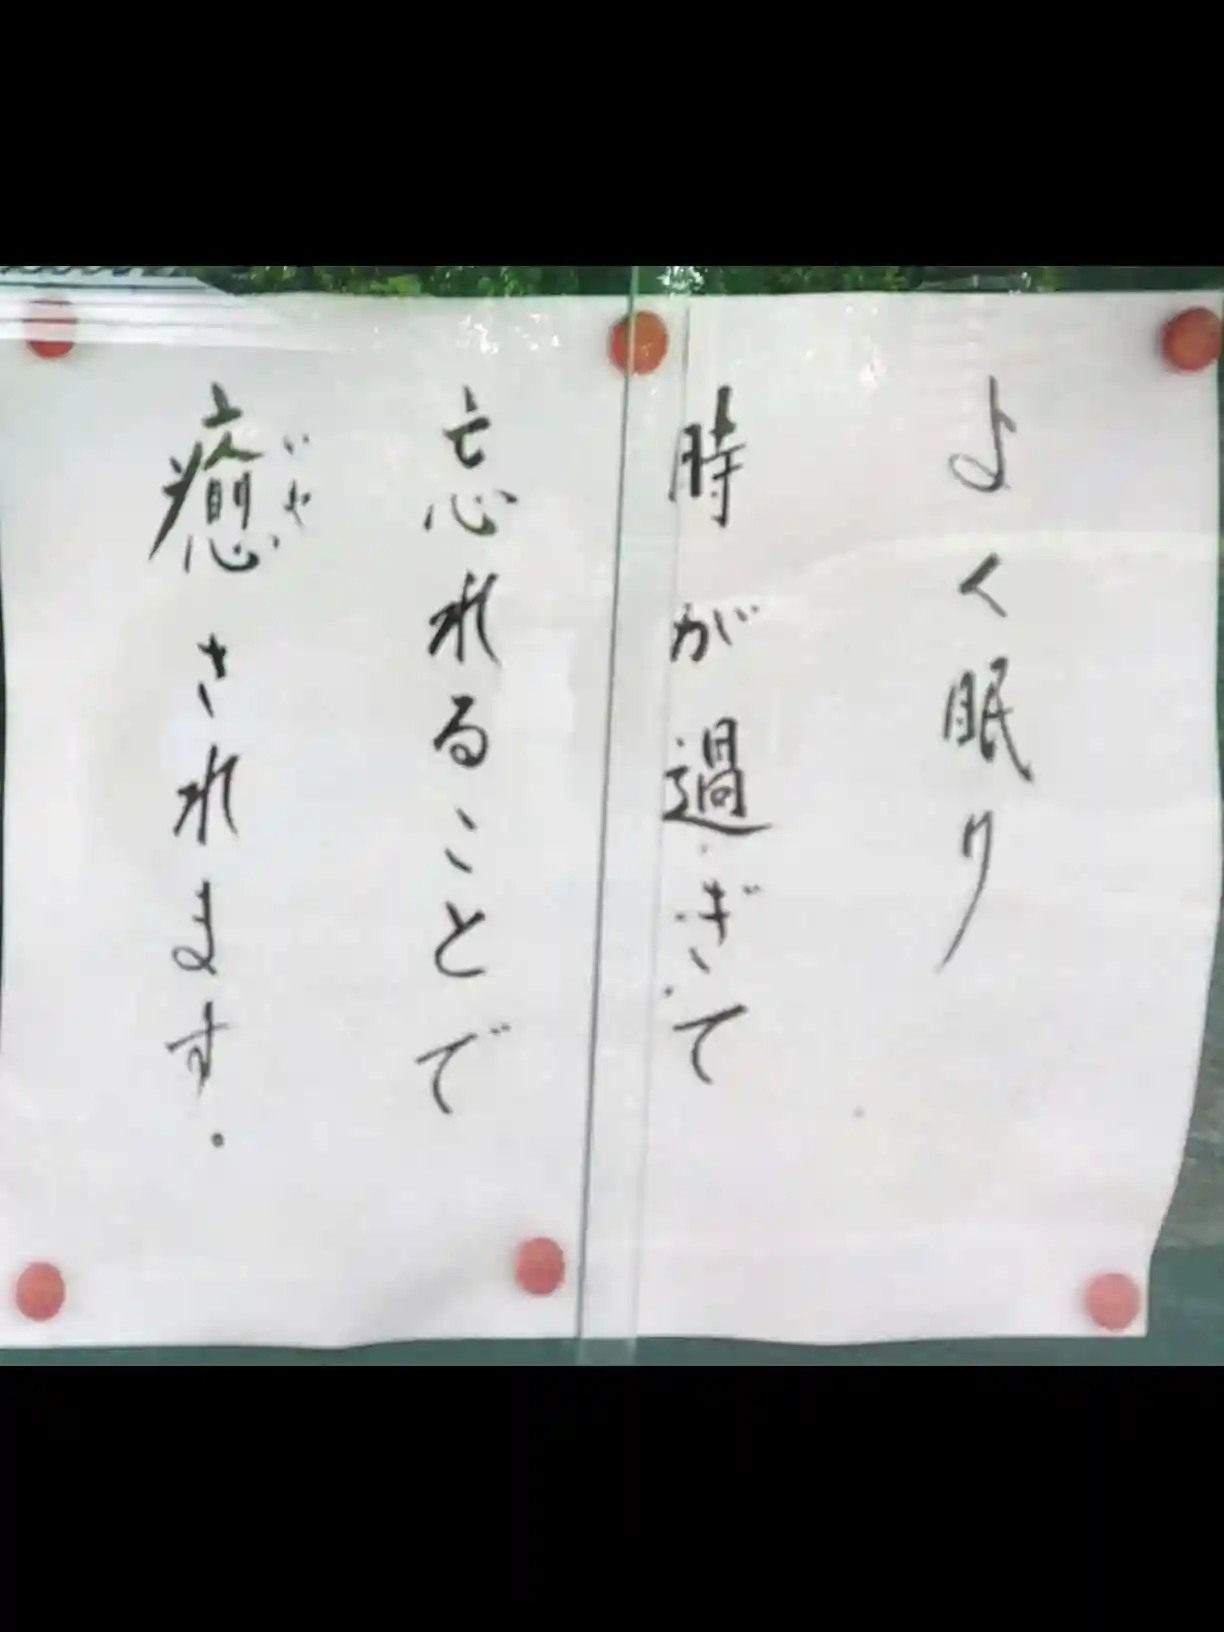 よく眠り
時が過ぎて
忘れることで
癒されます.
いや